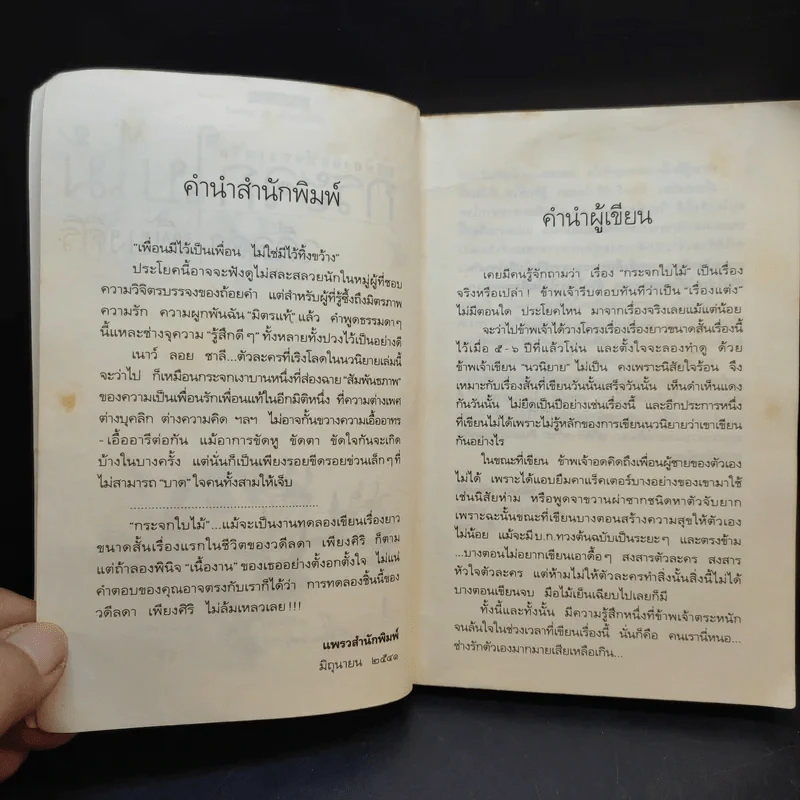 คำนำสำนักพิมพ์
"เพื่อนมีไว้เป็นเพื่อน ไม่ใช่มีไว้ทิ้งขว้าง"
ประโยคนี้อาจจะฟังดูไม่สละสลวยนักในหมู่ผู้ที่ชอบ
ความวิจิตรบรรจงของถ้อยคำ แต่สำหรับผู้ที่รู้ซึ้งถึงมิตรภาพ
ความรัก ความผูกพันฉัน "มิตรแท้" แล้ว คำพูดธรรมดาๆ
นี้แหละช่างจุความ "รู้สึกดีๆ" ทั้งหลายทั้งปวงไว้เป็นอย่างดี
เนาว์ ลอย ชาลี...ตัวละครที่เริงโลดในนวนิยายเล่มนี้
จะว่าไป ก็เหมือนกระจกเงาบานหนึ่งที่ส่องฉาย "สัมพันธภาพ"
ของความเป็นเพื่อนรักเพื่อนแท้ในอีกมิติหนึ่ง ที่ความต่างเพศ
ต่างบุคลิก ต่างความคิด ฯลฯ ไม่อาจกั้นขวางความเอื้ออาทร
- เอื้ออารีต่อกัน แม้อาการขัดหู ขัดตา ขัดใจกันจะเกิด
บ้างในบางครั้ง แต่นั่นก็เป็นเพียงรอยขีดรอยข่วนเล็กๆ ที่
ไม่สามารถ "บาด" ใจคนทั้งสามให้เจ็บ
..............................................................
"กระจกใบไม้"...แม้จะเป็นงานทดลองเขียนเรื่องยาว
ขนาดสั้นเรื่องแรกในชีวิตของวดีลดา เพียงศิริ ก็ตาม
แต่ถ้าลองพินิจ "เนื้องาน" ของเธออย่างตั้งอกตั้งใจ ไม่แน่
คำตอบของคุณอาจตรงกับเราก็ได้ว่า การทดลองชิ้นนี้ของ
วดีลดา เพียงศิริ ไม่ล้มเหลวเลย !!!
แพรวสำนักพิมพ์
มิถุนายน ๒๕๔๑
คำนำผู้เขียน
เคยมีคนรู้จักถามว่า เรื่อง "กระจกใบไม้" เป็นเรื่อง
จริงหรือเปล่า ! ข้าพเจ้ารีบตอบทันทีว่าเป็น "เรื่องแต่ง"
ไม่มีตอนใด ประโยคไหน มาจากเรื่องจริงเลยแม้แต่น้อย
จะว่าไปข้าพเจ้าได้วางโครงเรื่องเรื่องยาวขนาดสั้นเรื่องนี้
ไว้เมื่อ ๕-๖ ปีที่แล้วโน่น และตั้งใจจะลองทำดู ด้วย
ข้าพเจ้าเขียน "นวนิยาย" ไม่เป็น คงเพราะนิสัยใจร้อน จึง
เหมาะกับเรื่องสั้นที่เขียนวันนั้นเสร็จวันนั้น เห็นดำเห็นแดง
กันวันนั้น ไม่ยืดเป็นปีอย่างเช่นเรื่องนี้ และอีกประการหนึ่ง
ที่เขียนไม่ได้เพราะไม่รู้หลักของการเขียนนวนิยายว่าเขาเขียน
กันอย่างไร
ในขณะที่เขียน ข้าพเจ้าอดคิดถึงเพื่อนผู้ชายของตัวเอง
ไม่ได้ เพราะได้แอบขโมยคาแร็คเตอร์บางอย่างของเขามาใช้
เช่นนิสัยห่าม หรือพูดจาขวานผ่าซากชนิดหาตัวจับยาก
เพราะฉะนั้นขณะที่เขียนบางตอนสร้างความสุขให้ตัวเอง
ไม่น้อย แม้จะมี บ.ก.ทวงต้นฉบับเป็นระยะๆ และตรงข้าม
...บางตอนไม่อยากเขียนเอาดื้อๆ สงสารตัวละคร สงสาร
หัวใจตัวละคร แต่ห้ามไม่ให้ตัวละครทำสิ่งนั้นสิ่งนี้ไม่ได้
บางตอนเขียนจบ มือไม้เย็นเฉียบไปเลยก็มี
ทั้งนี้และทั้งนั้น มีความรู้สึกหนึ่งที่ข้าพเจ้าตระหนัก
จนล้นใจในช่วงเวลาที่เขียนเรื่องนี้ นั่นก็คือ คนเรานี่หนอ...
ช่างรักตัวเองมากมายเสียเหลือเกิน...